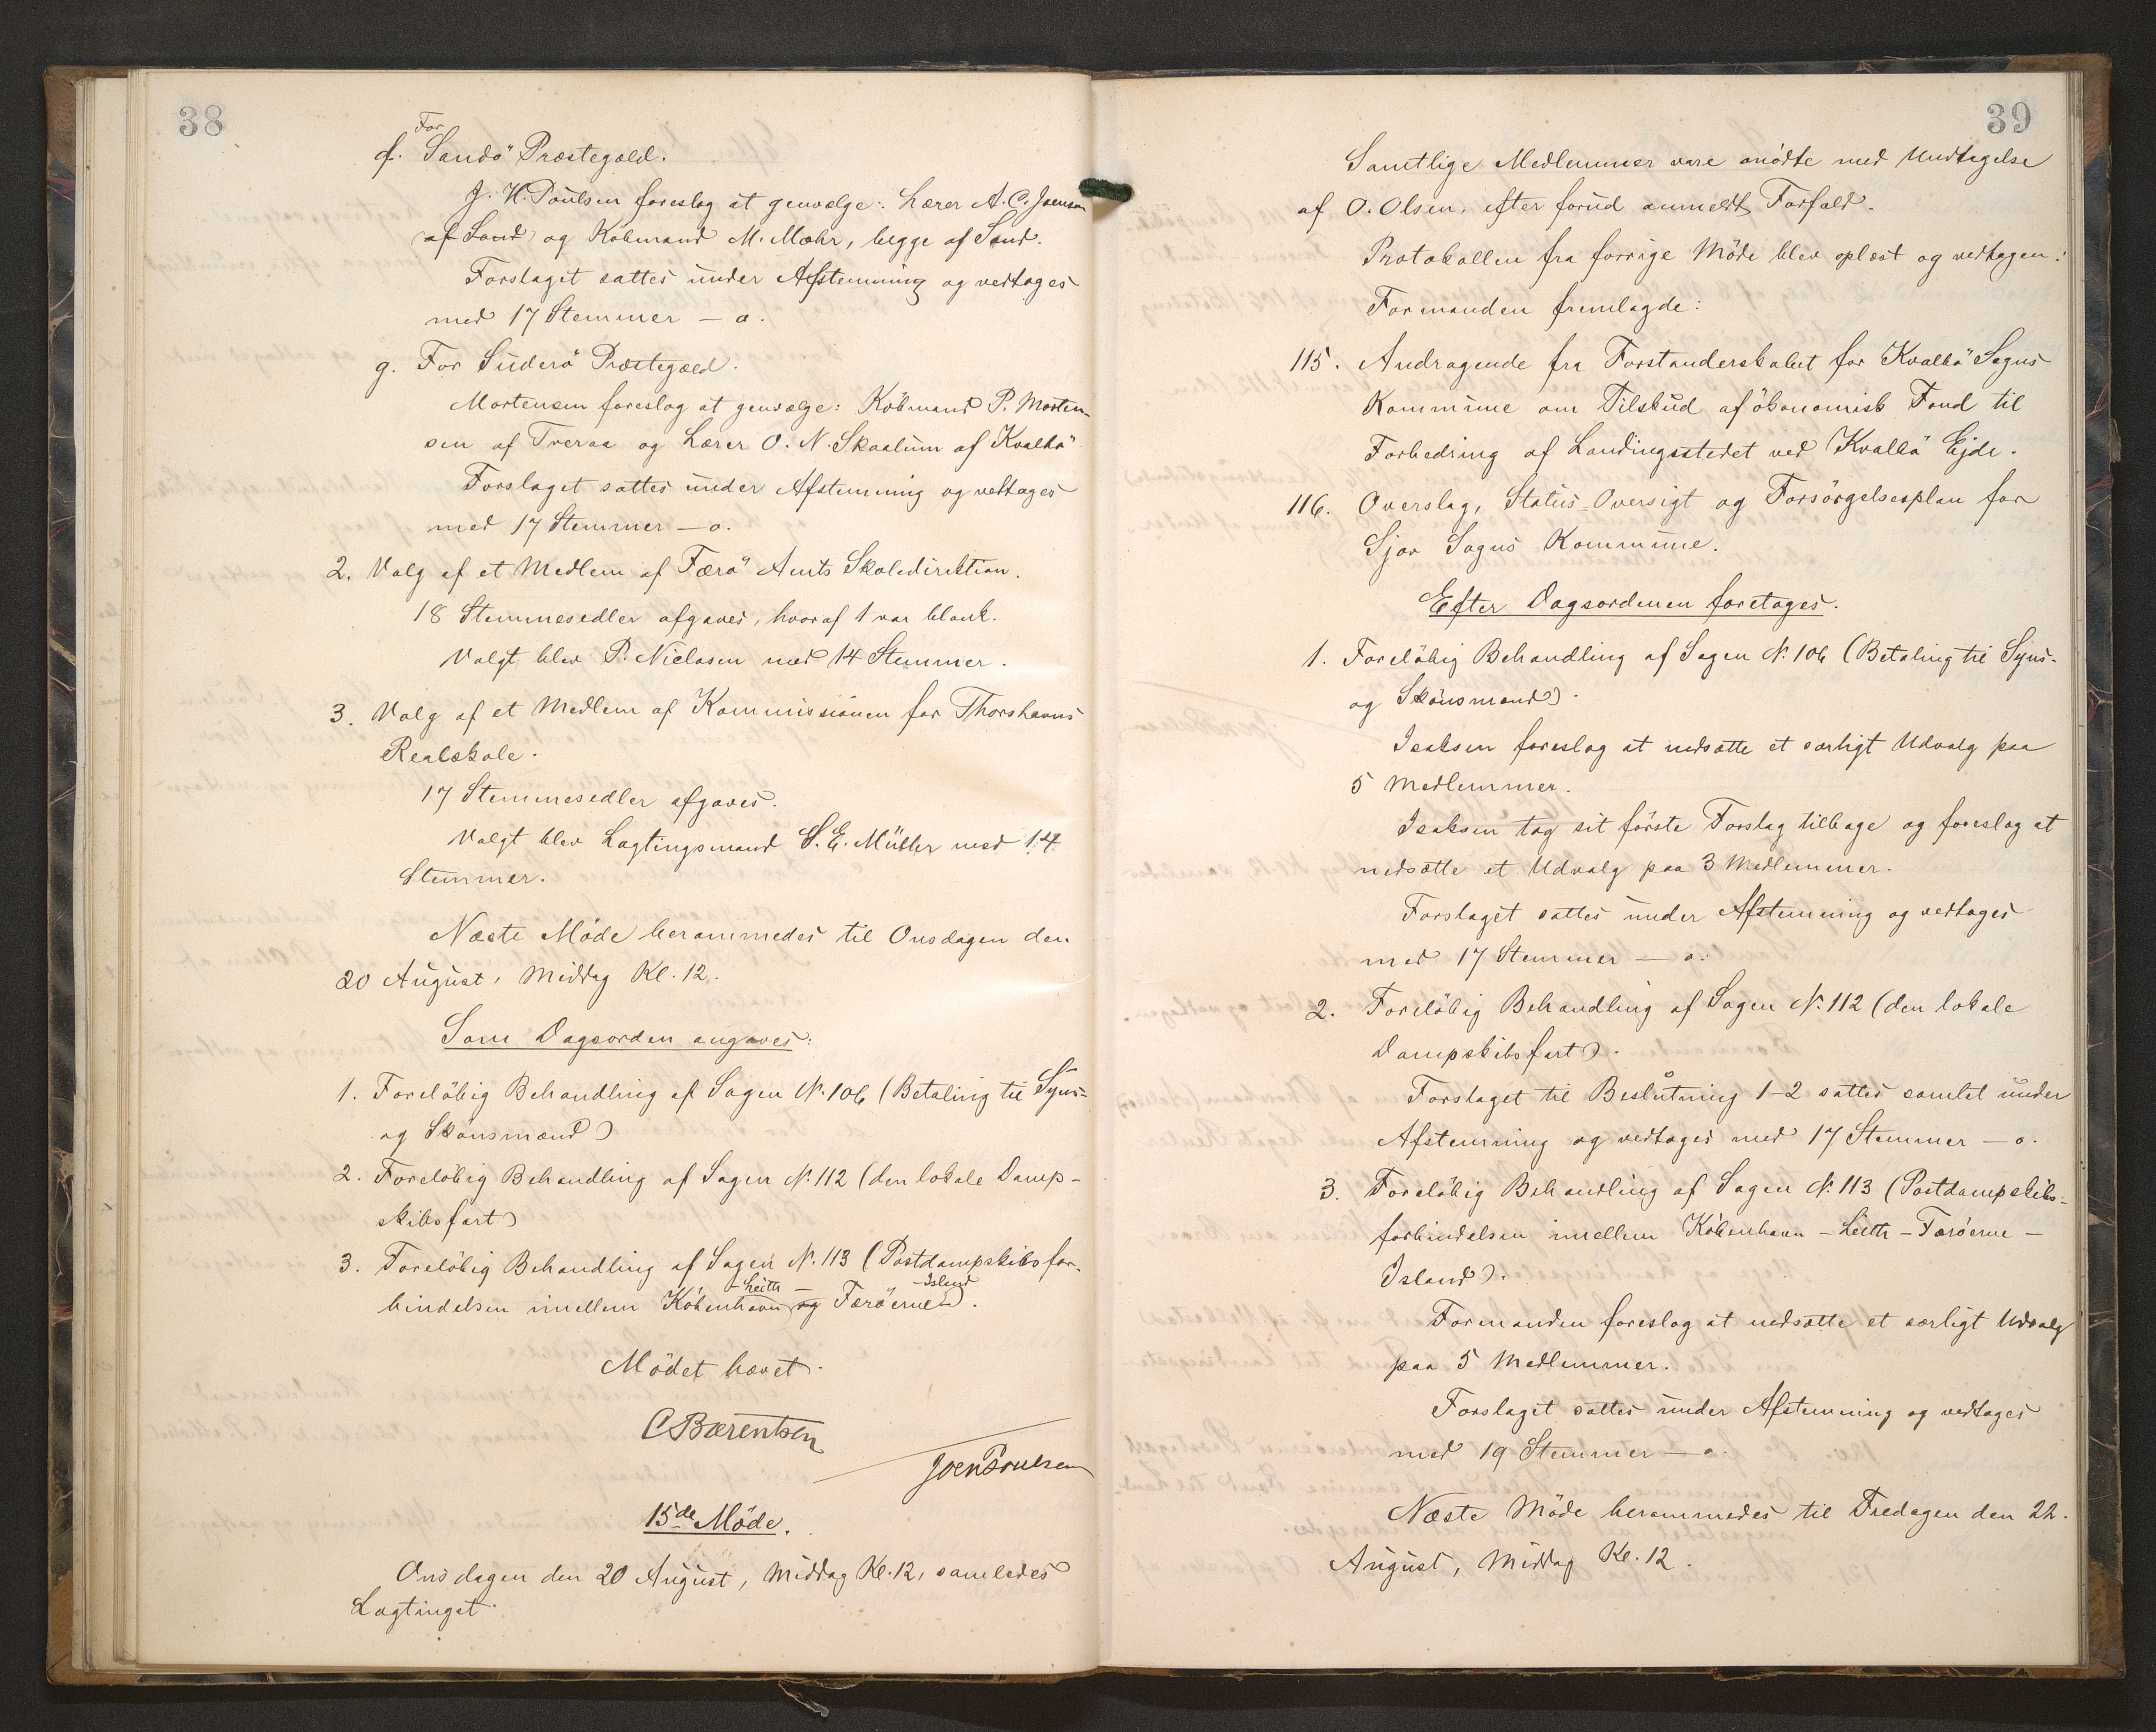 38
For
f. Sandö Præstegæld.
J. H. Poulsen foreslog at genvælge: Lærer A. C. Joensen
(af Sand) og Købmand M. Mohr, begge af Sand.
Forslaget sattes under Afstemning og vedtoges
med 17 Stemmer – o.
g. For Suderö Præstegæld.
Mortensen foreslog at genvælge: Købmand P. Morten-
sen af Tveraa og Lærer O. N. Skaalum af Kvalbö
Forslaget sattes under Afstemning og vedtoges
med 17 Stemmer – o.
2. Valg af et Medlem af Færö Amts Skoledirektion.
18 Stemmesedler afgaves, hvoraf 1 var blank.
Valgt blev P. Nielsen med 14 Stemmer.
3. Valg af et Medlem af Kommissionen for Thorshavns
Realskole.
17 Stemmesedler afgaves.
Valgt blev Lagtingsmand S. E. Müller med 14
Stemmer.
Næste Möde berammedes til Onsdagen den
20 August, Middag Kl. 12.
Som Dagsorden angaves:
1. Foreløbig Behandling af Sagen N. 106 (Betaling til Syns-
og Skönsmænd)
2. Foreløbig Behandling af Sagen N. 112 (den lokale Damp-
skibsfart)
3. Foreløbig Behandling af Sagen N. 113 (Postdampskibsfor-
– Leith – – Island
bindelsen imellem København og Færöerne).
Mödet hævet.
C Bærentsen
Joen Poulsen
15de Möde.
Onsdagen den 20 August, Middag Kl. 12, samledes
Lagtinget.
39
Samtlige Medlemmer vare mödte med Undtagelse
af O. Olsen, efter forud anmeldt Forfald.
Protokollen fra forrige Möde blev oplæst og vedtagen.
Formanden fremlagde:
115. Andragende fra Forstanderskabet for Kvalbö Sogns
Kommune om Tilskud af ökonomisk Fond til
Forbedring af Landingsstedet ved Kvalbö Ejde.
116. Overslag, Status-Oversigt og Forsörgelsesplan for
Sjov Sogns Kommune.
Efter Dagsordenen foretoges.
1. Foreløbig Behandling af Sagen N. 106 (Betaling til Syns-
og Skönsmænd).
Isaksen foreslog at nedsætte et særligt Udvalg paa
5 Medlemmer.
Isaksen tog sit förste Forslag tilbage og foreslog at
nedsætte et Udvalg paa 3 Medlemmer.
Forslaget sattes under Afstemning og vedtoges
med 17 Stemmer – o.
2. Foreløbig Behandling af Sagen N. 112 (den lokale
Dampskibsfart).
Forslaget til Beslutning 1–2 sattes samlet under
Afstemning og vedtoges med 17 Stemmer – o.
3. Foreløbig Behandling af Sagen N. 113 (Postdampskibs-
forbindelsen imellem København – Leith – Færöerne –
Island).
Formanden foreslog at nedsætte et særligt Udvalg
paa 5 Medlemmer.
Forslaget sattes under Afstemning og vedtoges
med 19 Stemmer – o.
Næste Möde berammedes til Fredagen den 22.
August, Middag Kl. 12.